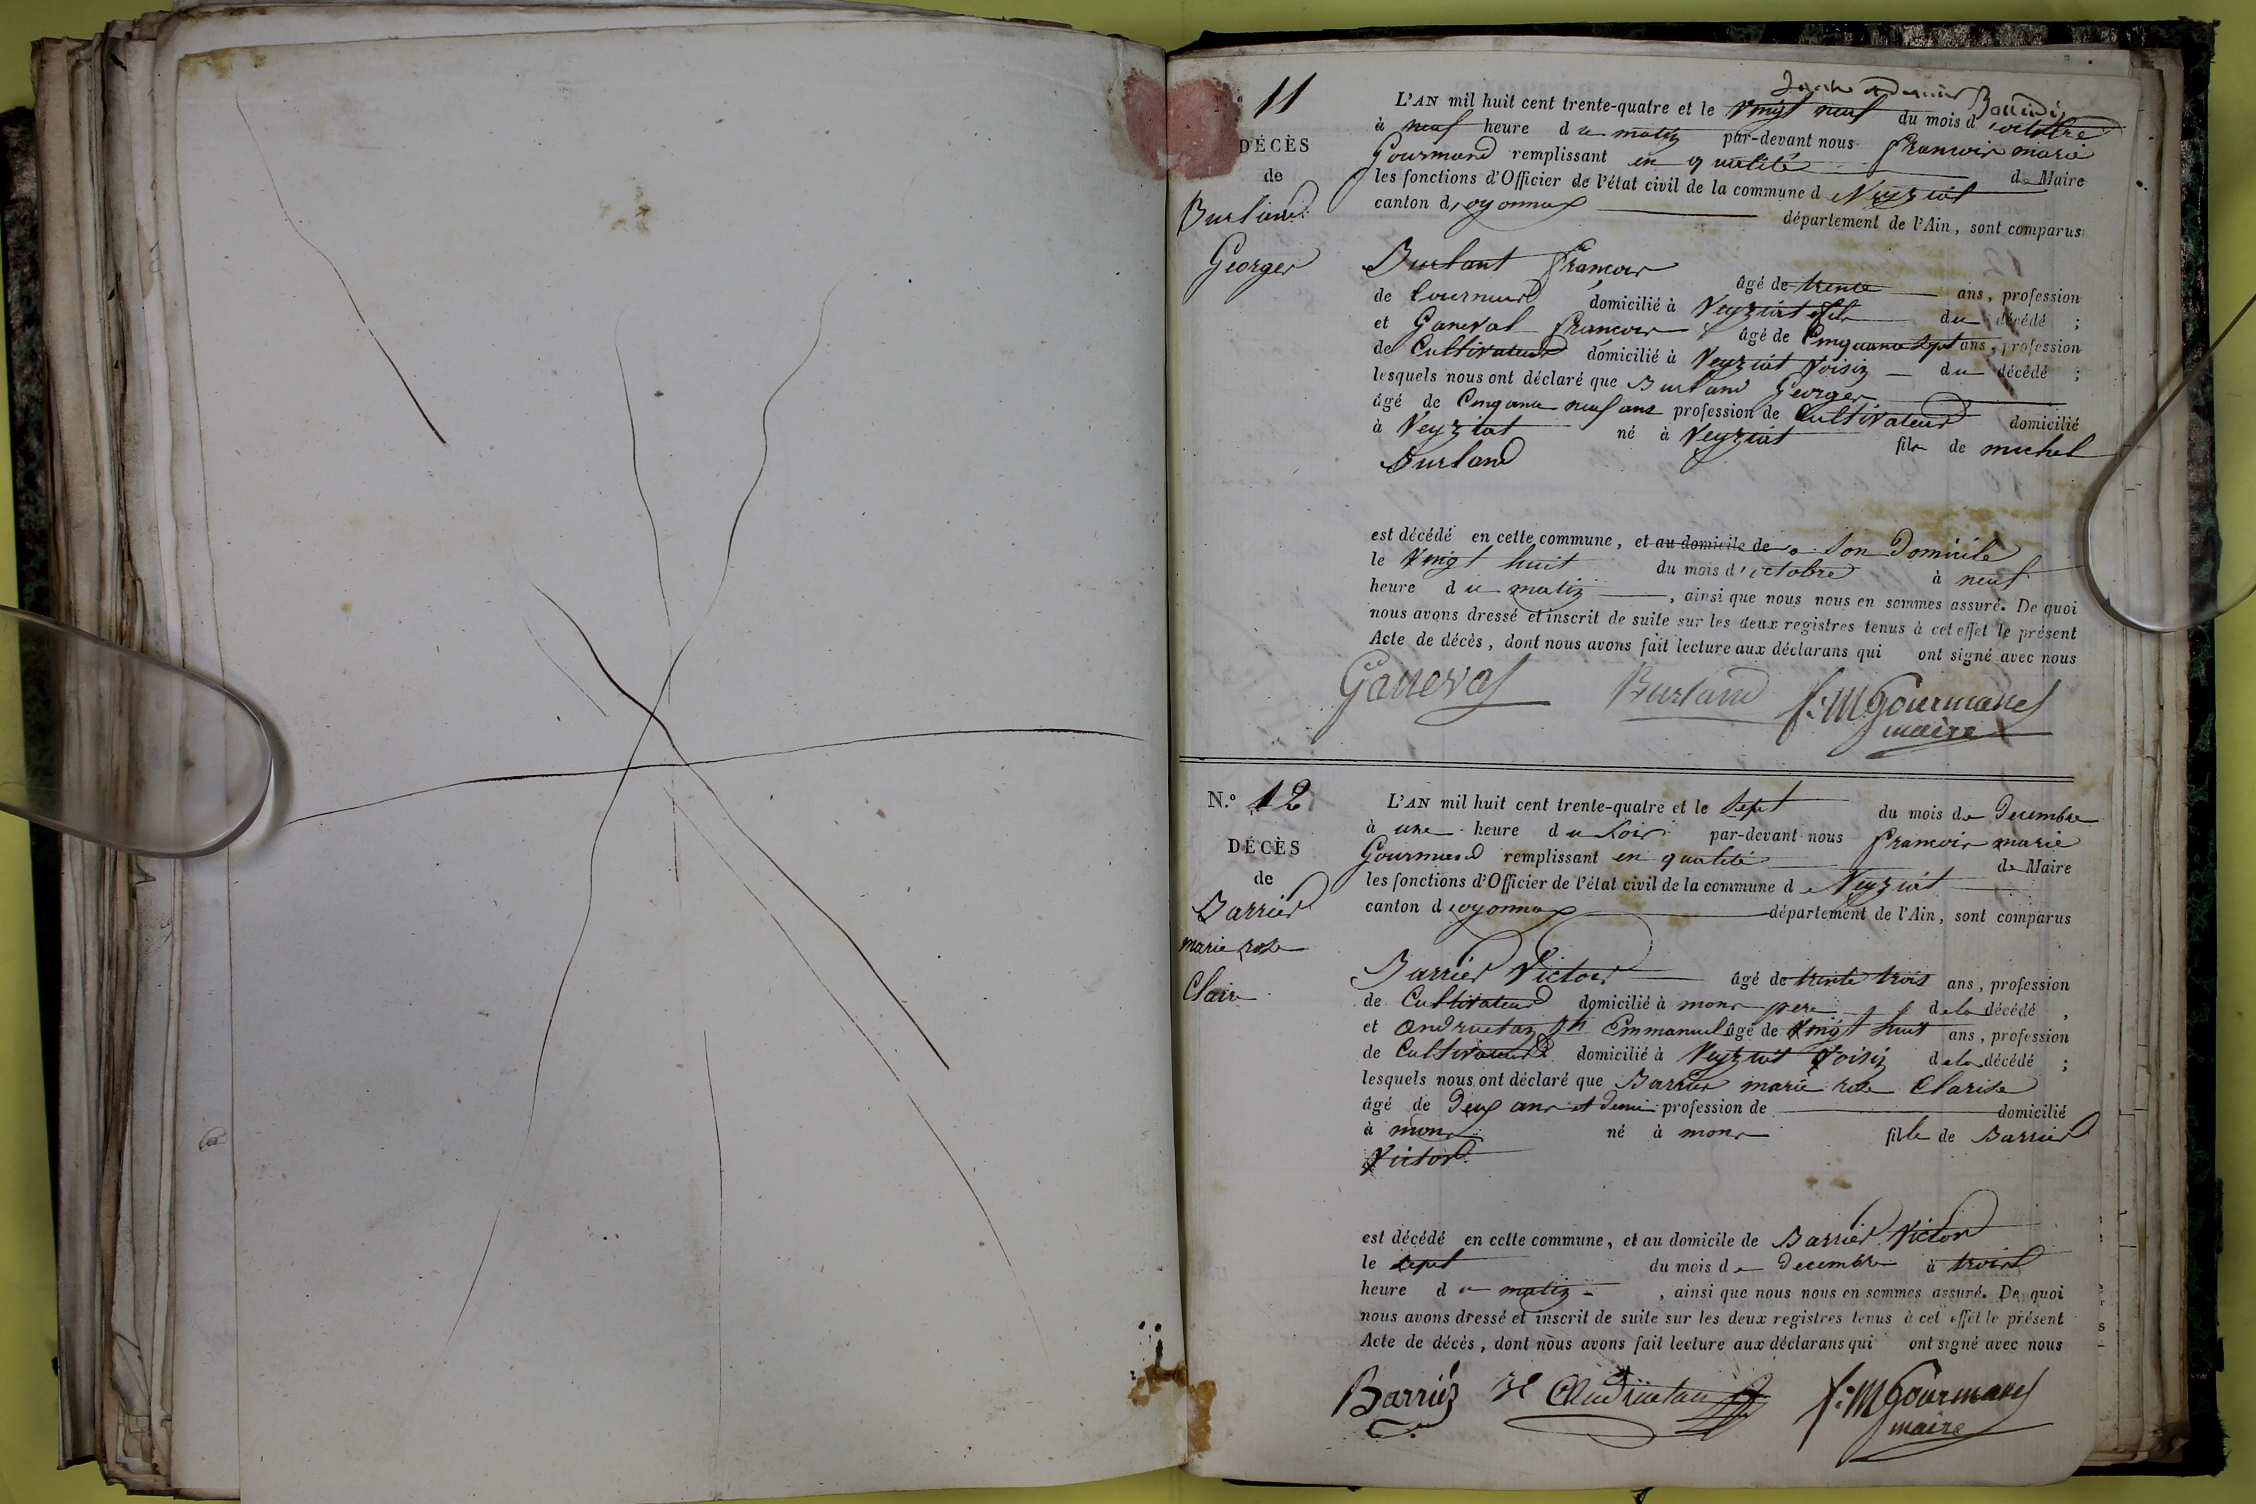 11
DÉCÈS
de
Burland
Georges
L'AN mil huit cent trente-quatre et le vingt neuf du mois d'octobre
à neuf heure du matin par-devant nous francois marie
Gourmand remplissant en qualité de Maire
les fonctions d'Officier de l'état civil de la commune de Veyziat
canton d'oyonnax département de l'Ain, sont comparus
Burlant francois âgé de trente ans, profession
de tourneur domicilié à Veyziat fils du décédé ;
et Ganeval francois âgé de Cinquante sept ans, profession
de Cultivateur domicilié à Veyziat Voisin du décédé ;
lesquels nous ont déclaré que Burland Georges
âgé de Cinqante neuf ans profession de Cultivateur domicilié
à Veyziat né à Veyziat fils de michel
Burland
est décédé en cette commune, et au domicile de a son Domicile
le vingt huit du mois d'octobre à neuf
heure du matin, ainsi que nous nous en sommes assuré. De quoi
nous avons dressé et inscrit de suite sur les deux registres tenus à cet effet le présent
Acte de décès, dont nous avons fait lecture aux déclarans qui ont signé avec nous
Ganeval Burland f: M Gourmand
maire
N.º 12
DÉCÈS
de
Barrier
marie rose
Claire
L'AN mil huit cent trente-quatre et le sept du mois de Decembre
à une heure du soir par-devant nous francois marie
Gourmand remplissant en qualité de Maire
les fonctions d'Officier de l'état civil de la commune de Veyziat
canton d'oyonnax département de l'Ain, sont comparus
Barrier Victor âgé de trente trois ans, profession
de Cultivateur domicilié à mons pere de la décédé ,
et andruetan jh Emmanuel âgé de vingt huit ans, profession
de Cultivateur domicilié à Veyziat Voisin de la décédé ;
lesquels nous ont déclaré que Barrier marie rose Clarise
âgé de Deux ans et demi profession de domicilié
à mons né à mons fille de Barrier
Victor
est décédé en cette commune, et au domicile de Barrier Victor
le sept du mois de Decembre à trois
heure du matin, ainsi que nous nous en sommes assuré. De quoi
nous avons dressé et inscrit de suite sur les deux registres tenus à cet effet le présent
Acte de décès, dont nous avons fait lecture aux déclarans qui ont signé avec nous
Barriéz Andruetan f: M Gourmand
maire